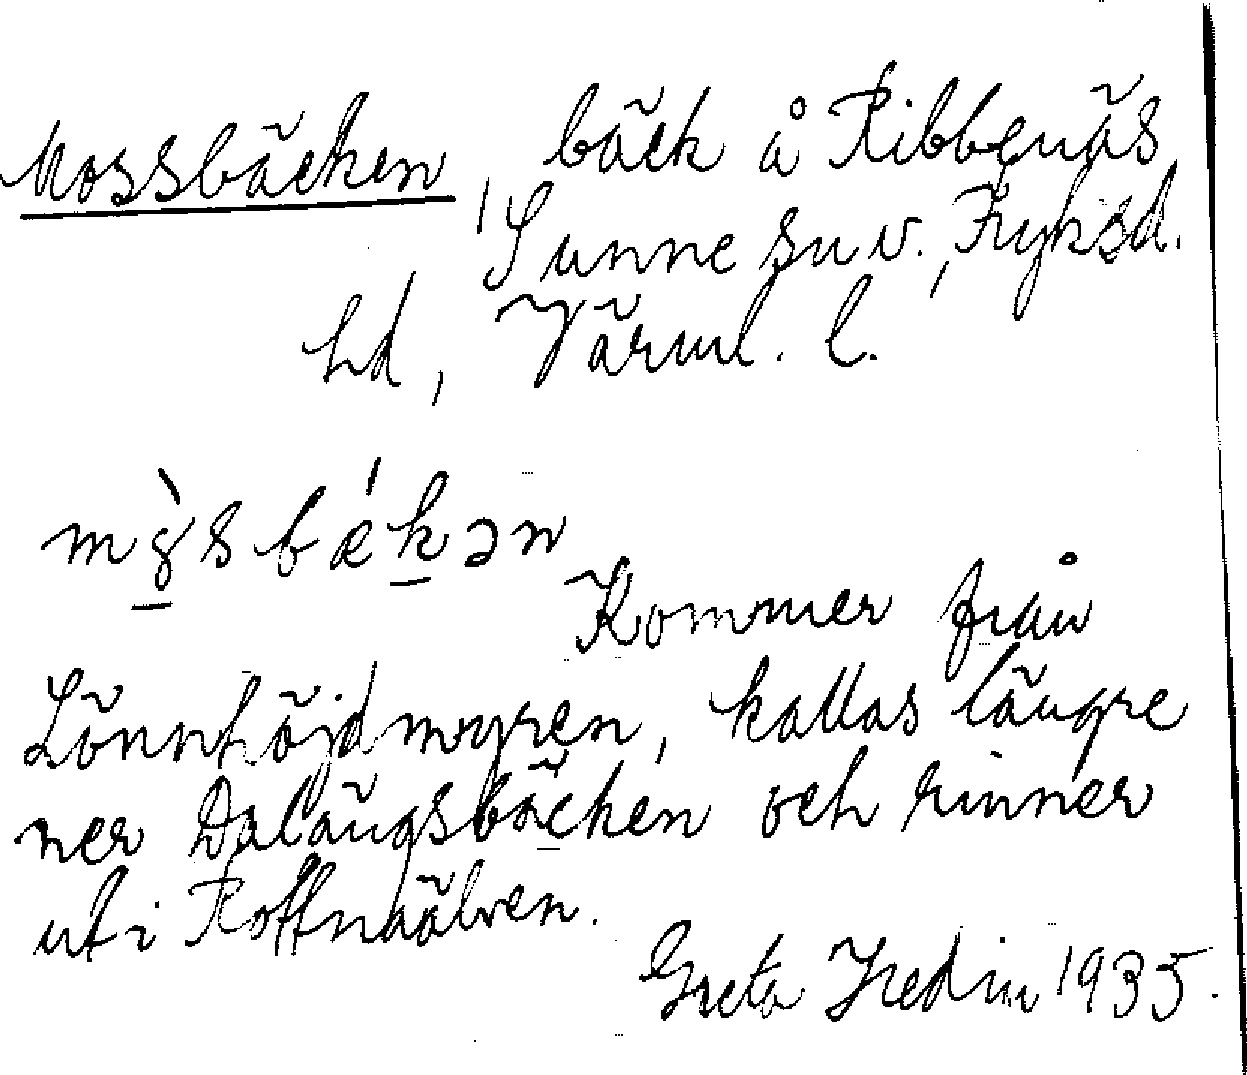 Mossbäcken, bäck å Ribbenäs,
Sunne sn v., Fryksd.
hd, Värml. l.
mò̠sbǽk̠ən
Kommer från
Lönnhöjdmyren, kallas längre
ner Dalängsbäcken och rinner
ut i Rottnaälven.
Greta Hedin 1935.